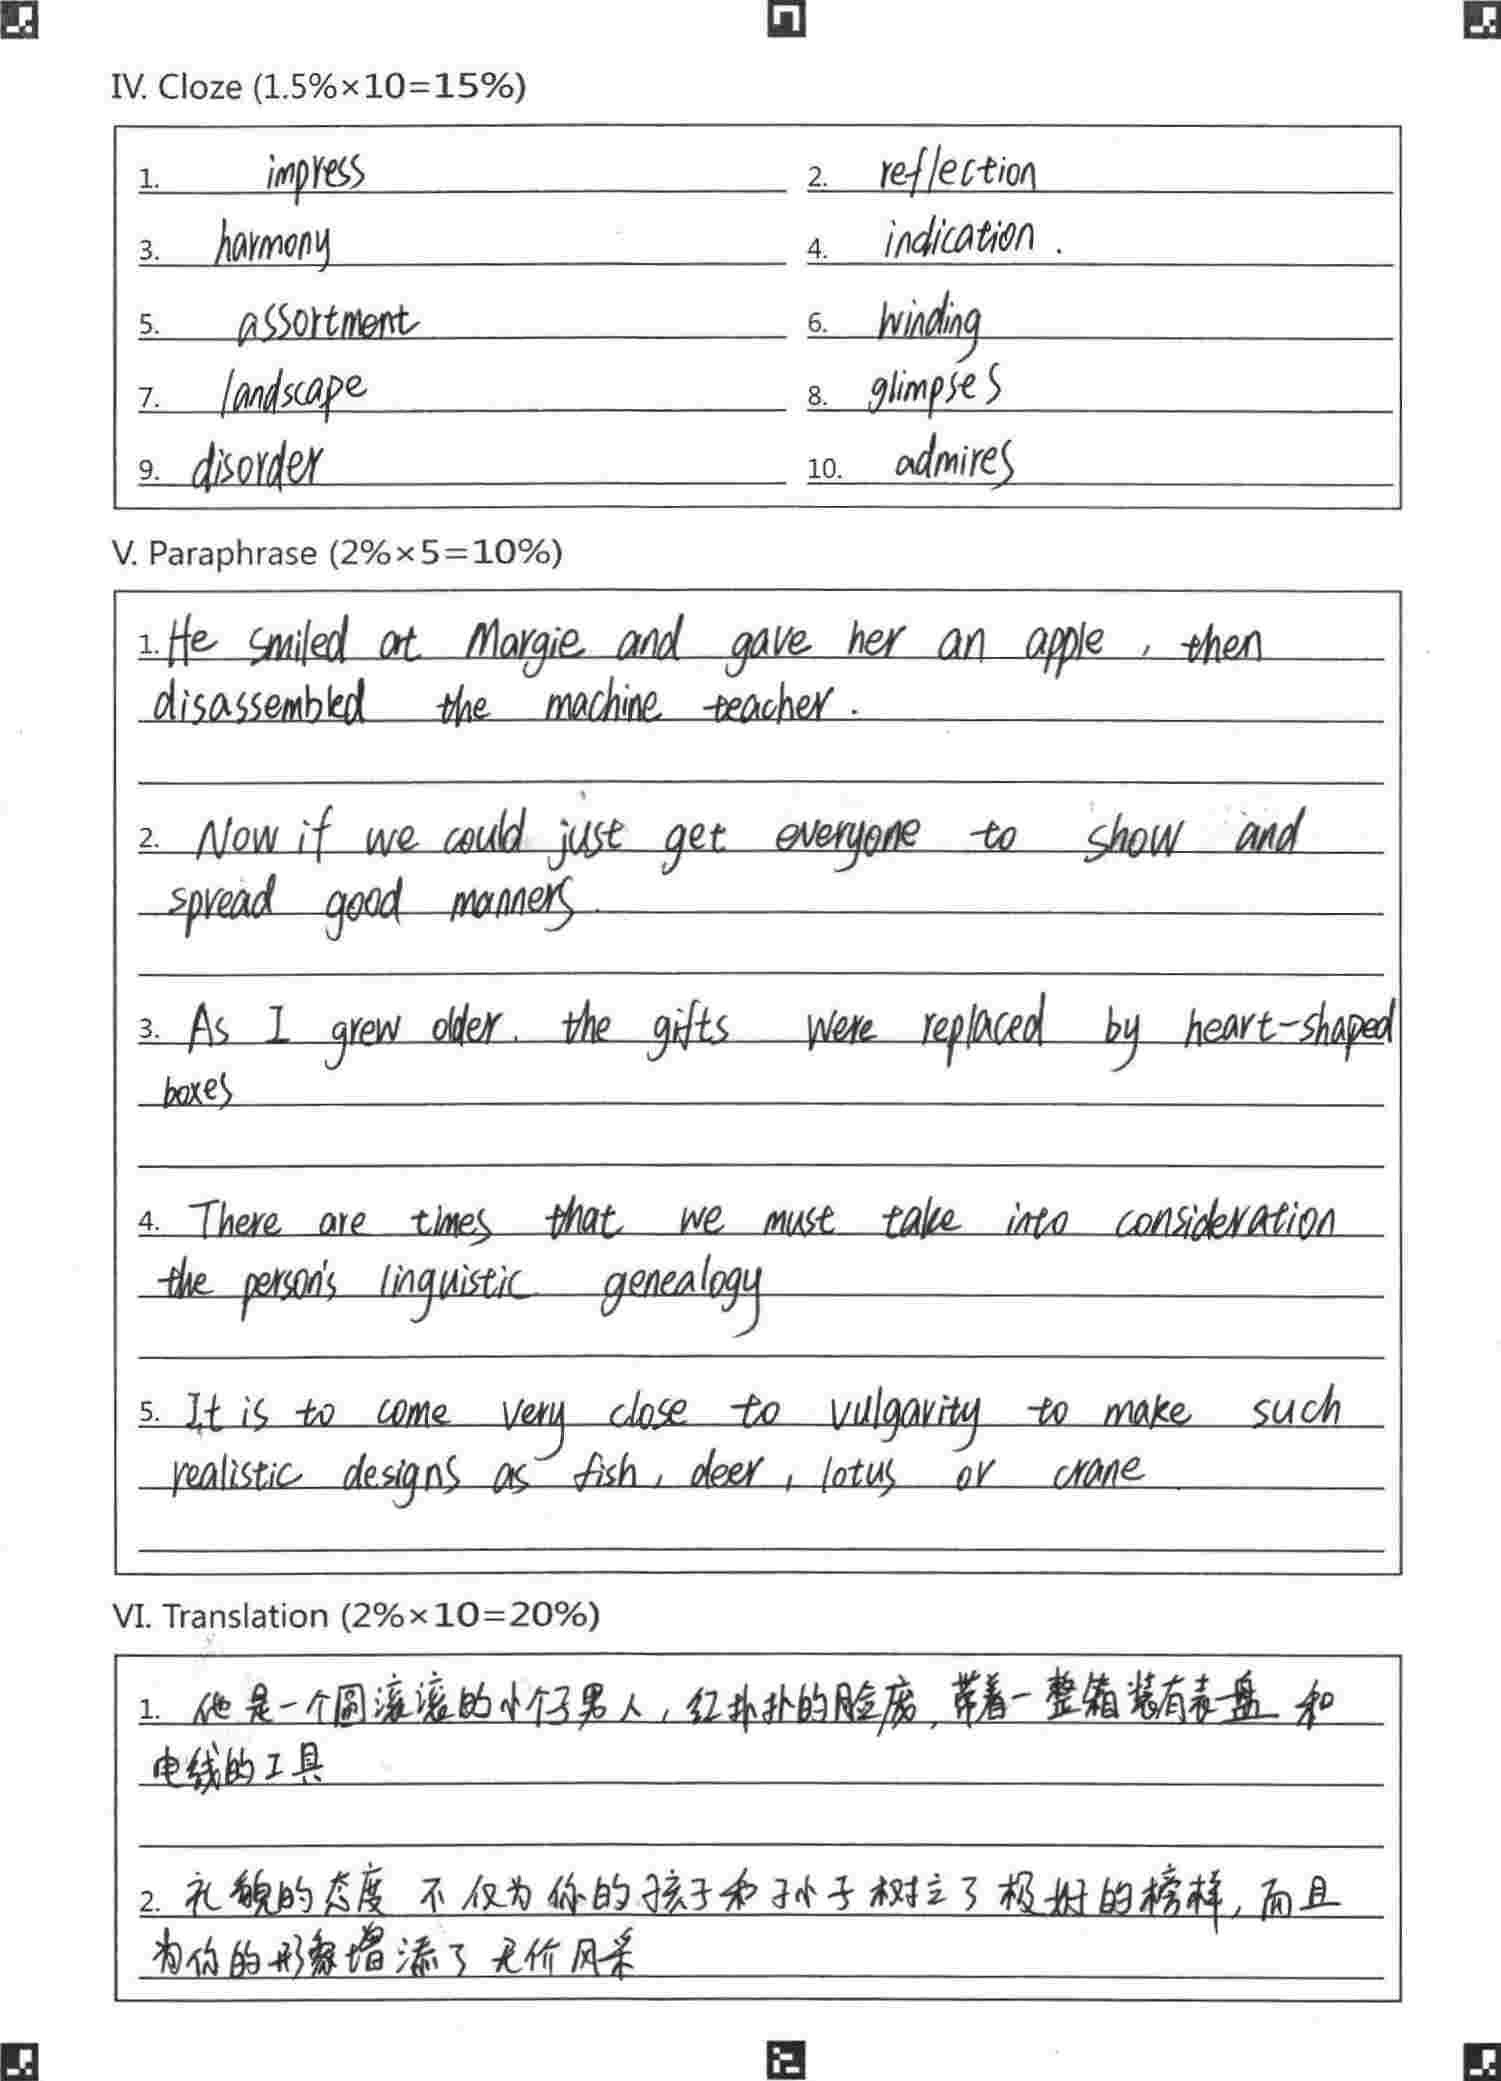 IV. Cloze (1.5%×10=15%)
1. impress 2. reflection
3. harmony 4. indication .
5. assortment 6. winding
7. landscape 8. glimpses
9. disorder 10. admires
V. Paraphrase (2%×5=10%)
1. He smiled at Margie and gave her an apple , then
disassembled the machine teacher .
2. Now if we could just get everyone to show and
spread good manners.
3. As I grew older. the gifts were replaced by heart-shaped
boxes
4. There are times that we must take into consideration
the person's linguistic genealogy
5. It is to come very close to vulgarity to make such
realistic designs as fish, deer, lotus or crane
VI. Translation (2%×10=20%)
1. 他是一个圆滚滚的小个子男人,红扑扑的脸庞,带着一整箱装有表盘和
电线的工具
2. 礼貌的态度不仅为你的孩子和孙子树立了极好的榜样,而且
为你的形象增添了无价风采